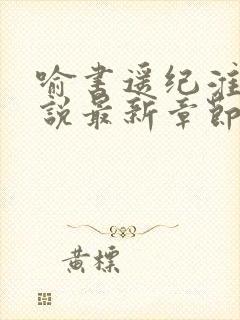 喻书遥纪淮
說最新章節
黄標